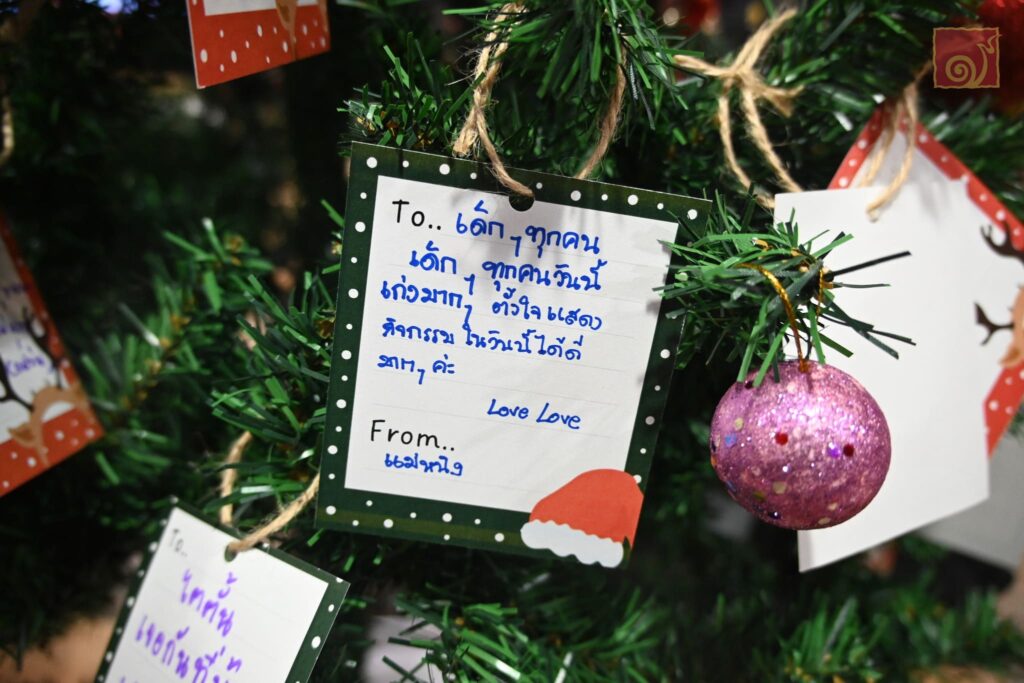 To.. เด็กๆ ทุกคน
เด็กๆ ทุกคนวันนี้
เก่งมากๆ ตั้งใจแสดง
กิจกรรมในวันนี้ได้ดี
มากๆ ค่ะ
Love Love
From..
แม่หนิง
To..
ไตตั้น
เจอกันที่